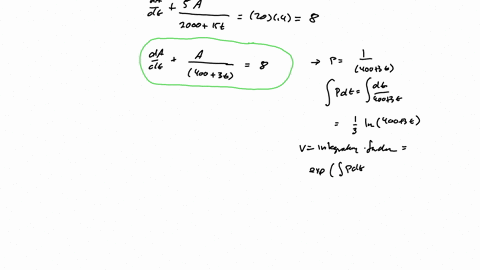 dA/dt + 5A/(2000+15t) = (20)(.4) = 8
dA/dt + A/(400+3t) = 8
→ P = 1/(400+3t)
∫Pdt = ∫dt/400+3t
= 1/3 ln(400+3t)
V = integrating factor =
exp(∫Pdt